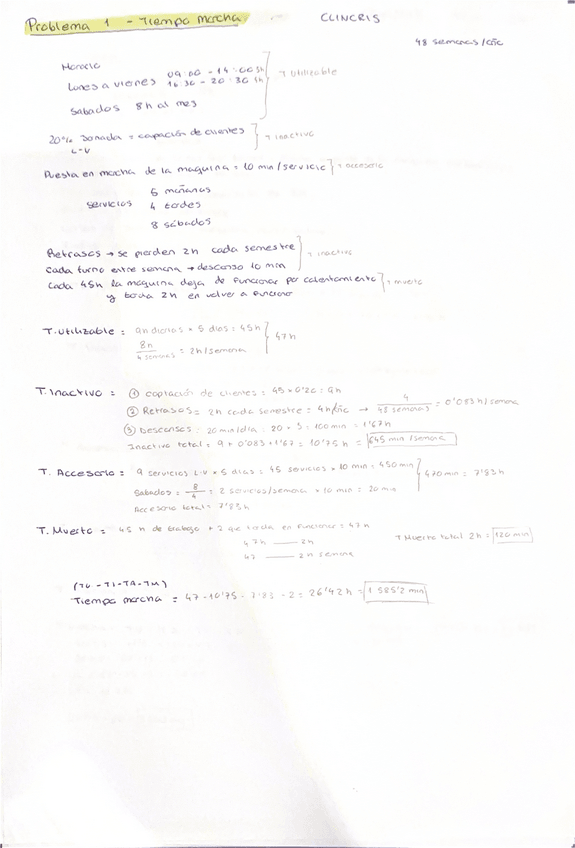 Problema 1 - Tiempo marcha
CLINCRIS
48 semanas/año
Horario
Lunes a viernes 09:00 - 14:00 5h
16:30 - 20:30 4h
T utilizable
Sabados 8h al mes
20% Jornada = captación de clientes
L-V
T inactivo
Puesta en marcha de la maquina = 10 min/servicio T accesorio
6 mañanas
servicios 4 tardes
8 sábados
Retrasos → se pierden 2h cada semestre
T inactivo
cada turno entre semana → descanso 10 min
Cada 45h la maquina deja de funcionar por calentamiento T muerto
y tarda 2h en volver a funcionar
T. Utilizable = 9h diarias × 5 dias = 45h
47h
8h / 4 semanas = 2h/semana
T. Inactivo = ① captación de clientes = 45 × 0'20 = 9h
② Retrasos = 2h cada semestre = 4h/año → 4 / 48 semanas = 0'083 h/semana
③ Descansos = 20 min/dia = 20 × 5 = 100 min = 1'67h
Inactivo total = 9 + 0'083 + 1'67 = 10'75 h = 645 min/semana
T. Accesorio = 9 servicios L-V × 5 dias = 45 servicios × 10 min = 450 min
470 min = 7'83h
Sabados = 8/4 = 2 servicios/semana × 10 min = 20 min
Accesorio total = 7'83h
T. Muerto = 45 h de trabajo + 2 que tarda en funcionar = 47h
T Muerto total 2h = 120 min
47h — 2h
47 — 2h semana
(TU - TI - TA - TM)
Tiempo marcha = 47 - 10'75 - 7'83 - 2 = 26'42h = 1 585'2 min